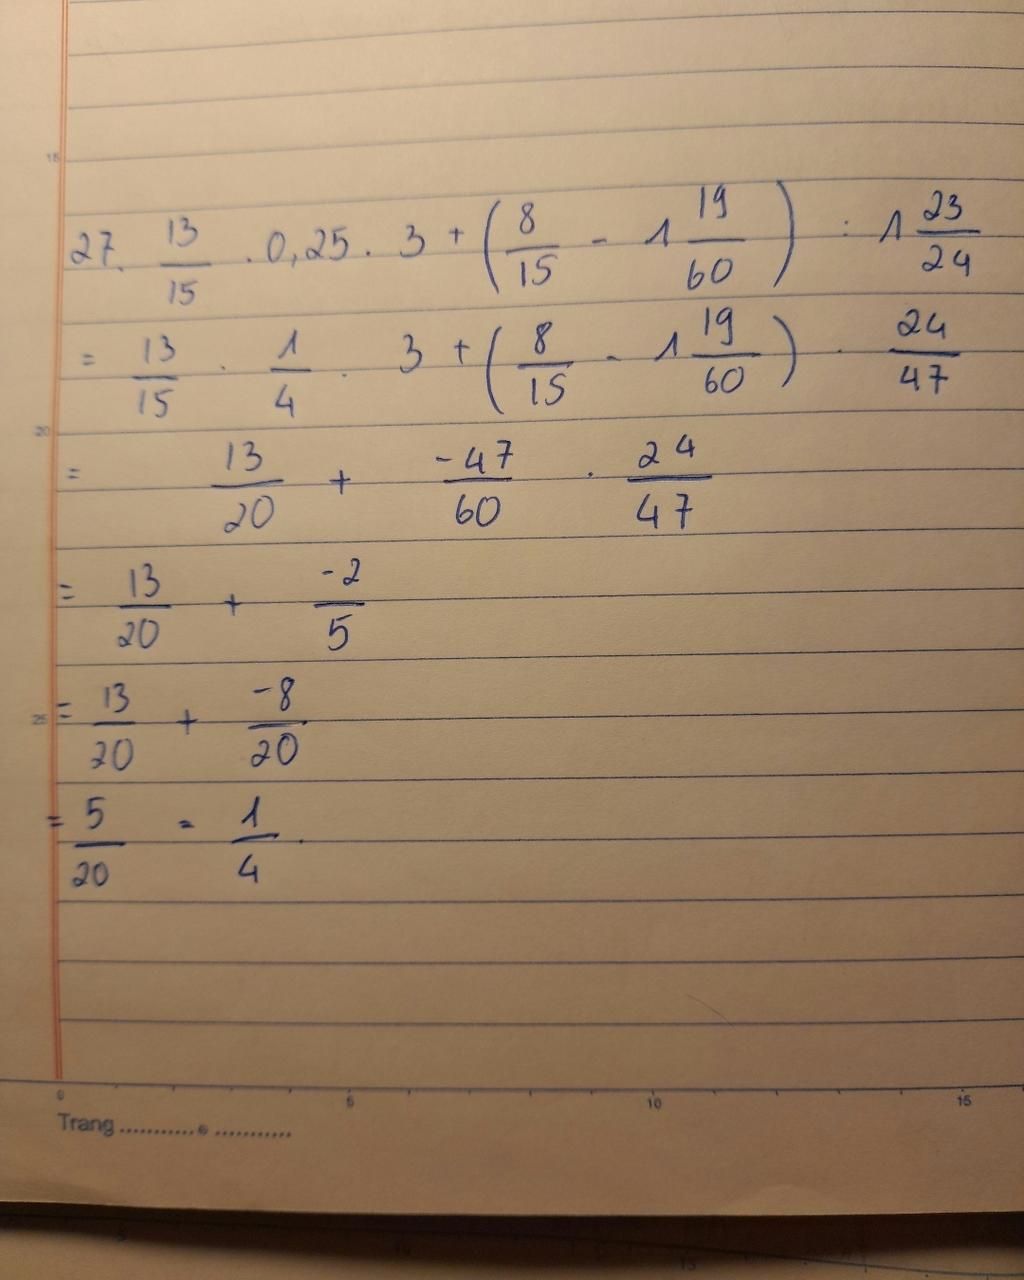 15
27. 13/15 . 0,25 . 3 + (8/15 - 1 19/60) : 1 23/24
= 13/15 . 1/4 . 3 + (8/15 - 1 19/60) . 24/47
20
= 13/20 + -47/60 . 24/47
= 13/20 + -2/5
25
= 13/20 + -8/20
= 5/20 = 1/4.
0 5 10 15
Trang ...........e...........